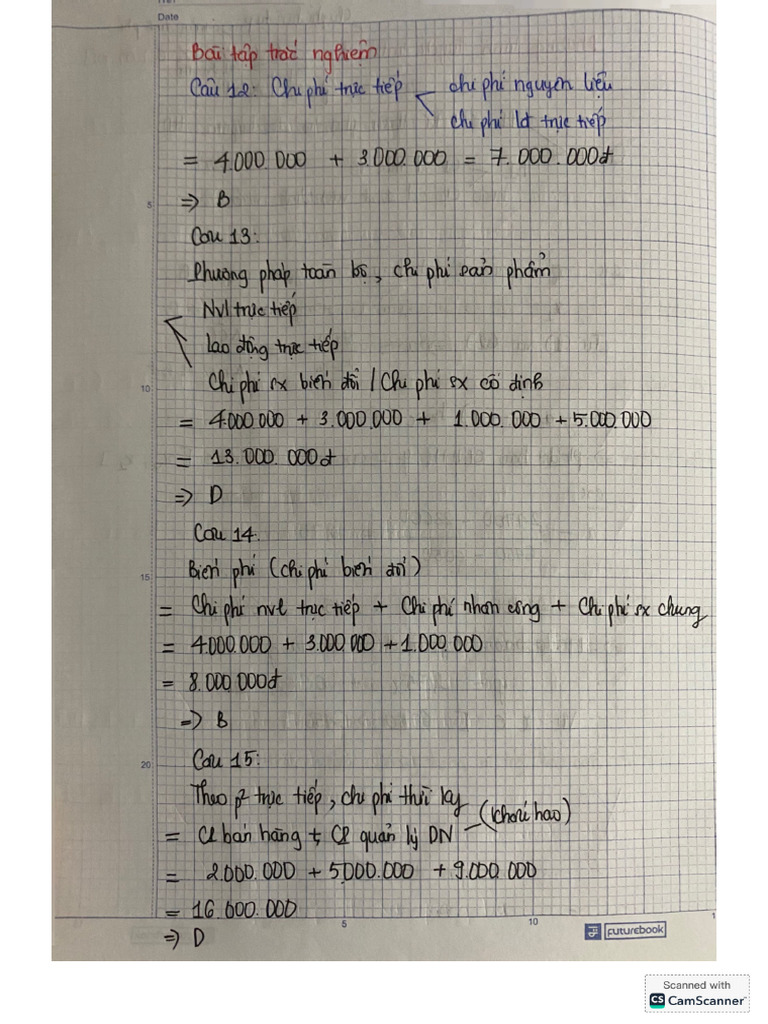 Date
Bài tập trắc nghiệm
Câu 12: Chi phí trực tiếp < chi phí nguyên liệu
chi phí lđ trực tiếp
= 4.000.000 + 3.000.000 = 7.000.000đ
5
=> B
Câu 13:
Phương pháp toàn bộ, chi phí sản phẩm
Nvl trực tiếp
lao động trực tiếp
10
Chi phí sx biến đổi / Chi phí sx cố định
= 4.000.000 + 3.000.000 + 1.000.000 + 5.000.000
= 13.000.000đ
=> D
Câu 14.
15
Biến phí (chi phí biến đổi)
= Chi phí nvl trực tiếp + Chi phí nhân công + Chi phí sx chung
= 4.000.000 + 3.000.000 + 1.000.000
= 8.000.000đ
=> B
20
Câu 15:
Theo p² trực tiếp, chi phí thời kỳ
= CP bán hàng + CP quản lý DN (khấu hao)
= 2.000.000 + 5.000.000 + 9.000.000
= 16.000.000
5 10 1
=> D
futurebook
Scanned with
CS CamScanner